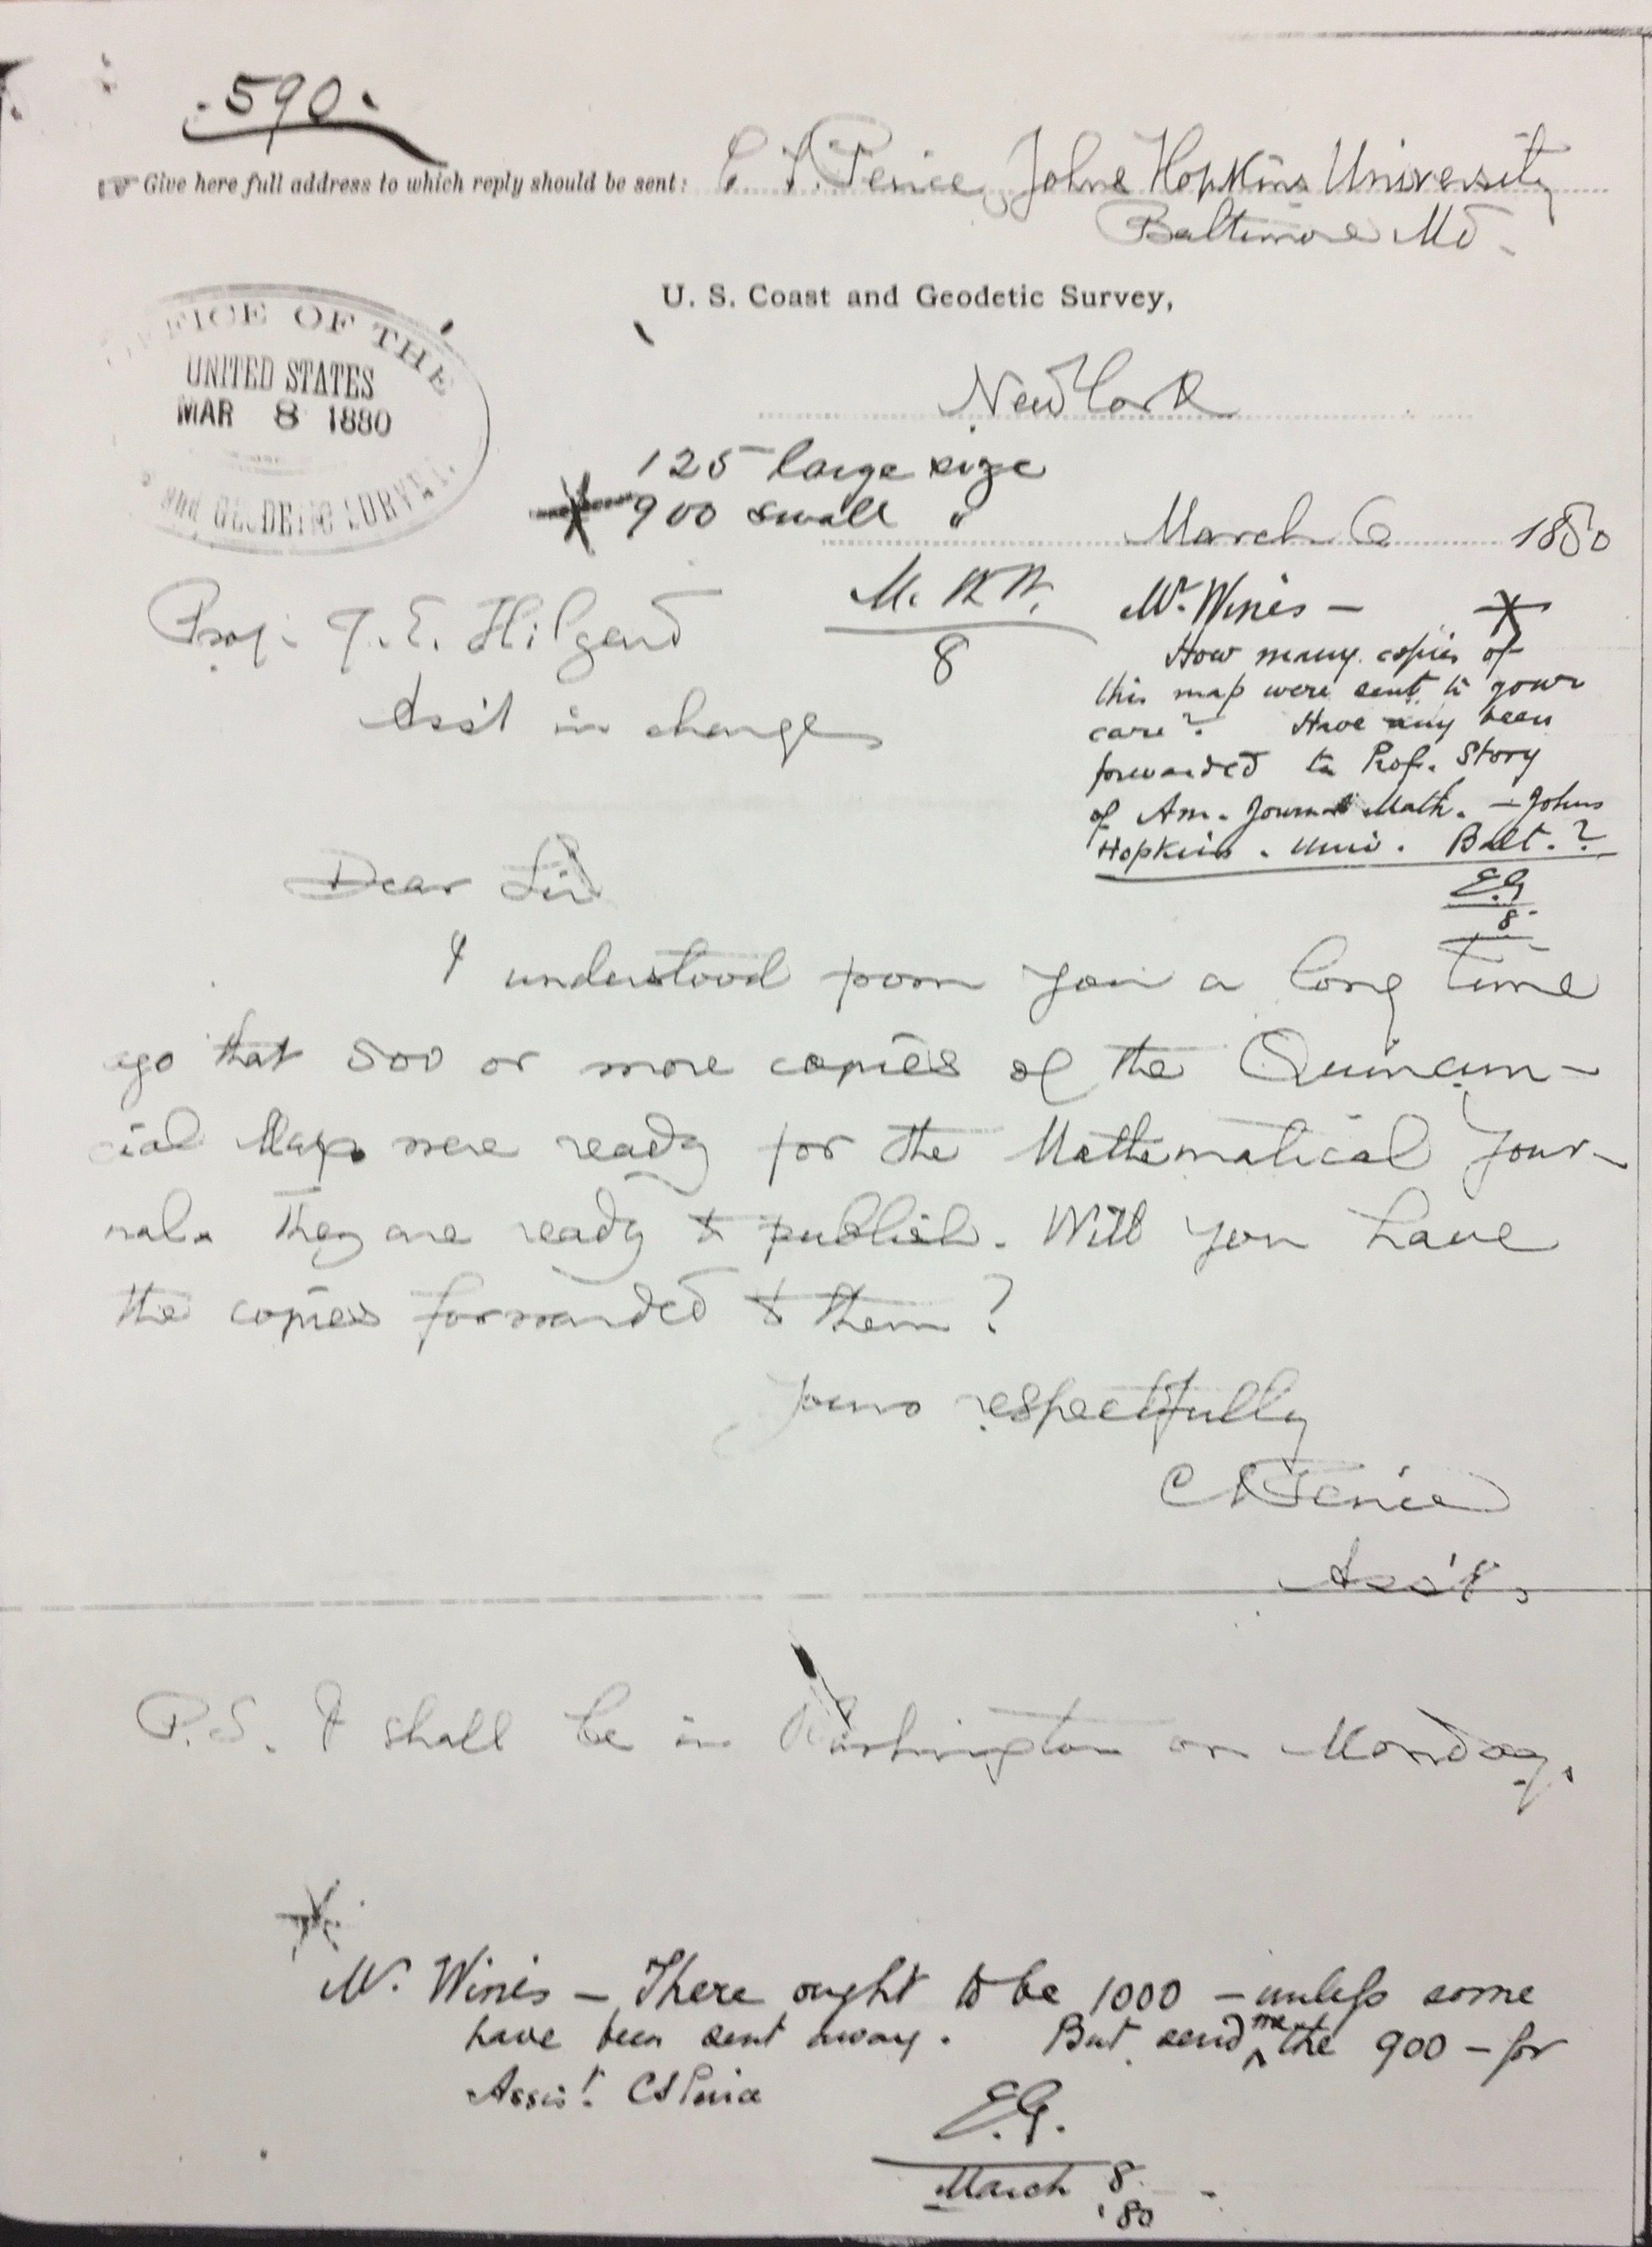 . 590 .
Give here full address to which reply should be sent: C S. Peirce, Johns Hopkins University
Baltimore Md.
U. S. Coast and Geodetic Survey,
OFFICE OF THE
UNITED STATES
MAR 8 1880
and GEODETIC SURVEY.
New York
125 large size
900 small "
March 6 1880
M. W W.
8
Prof. J. E. Hilgard
Ass't in charge
Mr. Wines —
How many copies of
this map were sent to your
care? Have any been
forwarded to Prof. Story
of Am. Journal Math. — Johns
Hopkins. Univ. Balt. ?
E.G
8
Dear Sir
I understood from you a long time
ago that 500 or more copies of the Quincun-
cial Map were ready for the Mathematical Jour-
nal. They are ready to publish. Will you have
the copies forwarded to them?
Yours respectfully
C S Peirce
Ass't.
P.S. I shall be in Washington on Monday.
Mr. Wines — There ought to be 1000 — unless some
have been sent away. But send me the 900 — for
Assist. CS Peirce
E.G.
March 8
'80